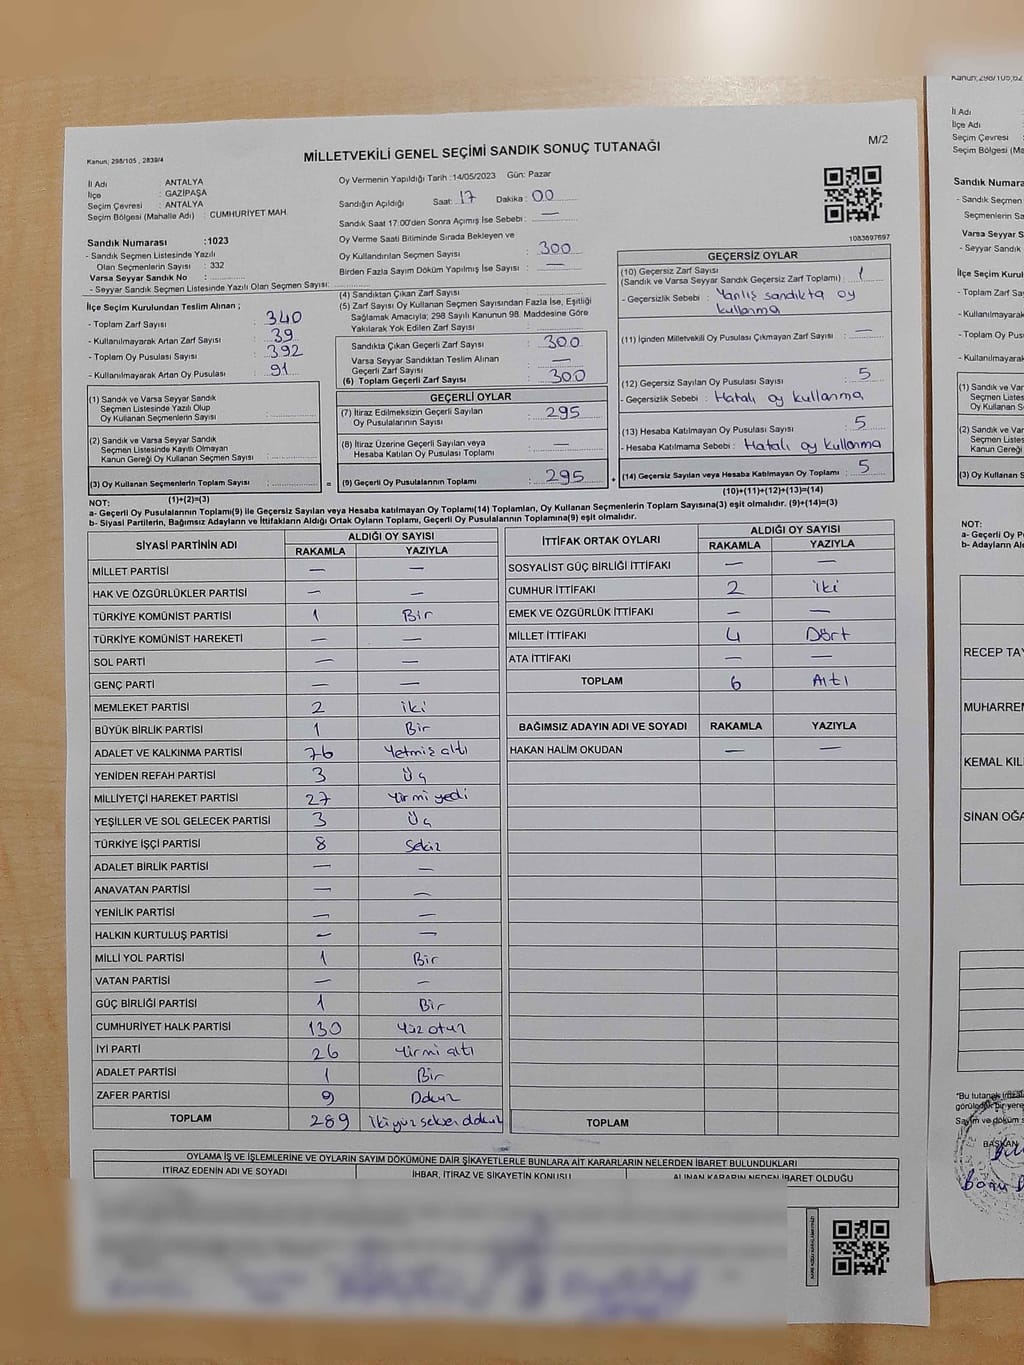 Kanun; 298/105 , 2839/4
MİLLETVEKİLİ GENEL SEÇİMİ SANDIK SONUÇ TUTANAĞI
M/2
İl Adı : ANTALYA
İlçe : GAZİPAŞA
Seçim Çevresi : ANTALYA
Seçim Bölgesi (Mahalle Adı) : CUMHURİYET MAH.
Oy Vermenin Yapıldığı Tarih :14/05/2023 Gün: Pazar
Sandığın Açıldığı Saat: 17 Dakika : 00
Sandık Saat 17:00'den Sonra Açımış İse Sebebi : —
Oy Verme Saati Bitiminde Sırada Bekleyen ve
Oy Kullandırılan Seçmen Sayısı : 300
Birden Fazla Sayım Döküm Yapılmış İse Sayısı : —
1083697697
Sandık Numarası :1023
- Sandık Seçmen Listesinde Yazılı
Olan Seçmenlerin Sayısı : 332
Varsa Seyyar Sandık No :
- Seyyar Sandık Seçmen Listesinde Yazılı Olan Seçmen Sayısı:
İlçe Seçim Kurulundan Teslim Alınan ;
- Toplam Zarf Sayısı : 340
- Kullanılmayarak Artan Zarf Sayısı : 39
- Toplam Oy Pusulası Sayısı : 392
- Kullanılmayarak Artan Oy Pusulası : 91
(1) Sandık ve Varsa Seyyar Sandık
Seçmen Listesinde Yazılı Olup
Oy Kullanan Seçmenlerin Sayısı :
(2) Sandık ve Varsa Seyyar Sandık
Seçmen Listesinde Kayıtlı Olmayan
Kanun Gereği Oy Kullanan Seçmen Sayısı :
(3) Oy Kullanan Seçmenlerin Toplam Sayısı : =
(1)+(2)=(3)
(4) Sandıktan Çıkan Zarf Sayısı :
(5) Zarf Sayısı Oy Kullanan Seçmen Sayısından Fazla İse, Eşitliği
Sağlamak Amacıyla; 298 Sayılı Kanunun 98. Maddesine Göre
Yakılarak Yok Edilen Zarf Sayısı :
Sandıkta Çıkan Geçerli Zarf Sayısı : 300
Varsa Seyyar Sandıktan Teslim Alınan
Geçerli Zarf Sayısı : —
(6) Toplam Geçerli Zarf Sayısı : 300
GEÇERLİ OYLAR
(7) İtiraz Edilmeksizin Geçerli Sayılan
Oy Pusulalarının Sayısı : 295
(8) İtiraz Üzerine Geçerli Sayılan veya
Hesaba Katılan Oy Pusulası Toplamı : —
(9) Geçerli Oy Pusulalarının Toplamı : 295 +
GEÇERSİZ OYLAR
(10) Geçersiz Zarf Sayısı
(Sandık ve Varsa Seyyar Sandık Geçersiz Zarf Toplamı) : 1
- Geçersizlik Sebebi : Yanlış sandıkta oy
kullanma
(11) İçinden Milletvekili Oy Pusulası Çıkmayan Zarf Sayısı : —
(12) Geçersiz Sayılan Oy Pusulası Sayısı : 5
- Geçersizlik Sebebi : Hatalı oy kullanma
(13) Hesaba Katılmayan Oy Pusulası Sayısı : 5
- Hesaba Katılmama Sebebi : Hatalı oy kullanma
(14) Geçersiz Sayılan veya Hesaba Katılmayan Oy Toplamı : 5
(10)+(11)+(12)+(13)=(14)
NOT:
a- Geçerli Oy Pusulalarının Toplamı(9) ile Geçersiz Sayılan veya Hesaba katılmayan Oy Toplamı(14) Toplamları, Oy Kullanan Seçmenlerin Toplam Sayısına(3) eşit olmalıdır. (9)+(14)=(3)
b- Siyasi Partilerin, Bağımsız Adayların ve İttifakların Aldığı Ortak Oyların Toplamı, Geçerli Oy Pusulalarının Toplamına(9) eşit olmalıdır.
SİYASİ PARTİNİN ADI ALDIĞI OY SAYISI
RAKAMLA YAZIYLA
MİLLET PARTİSİ — —
HAK VE ÖZGÜRLÜKLER PARTİSİ — —
TÜRKİYE KOMÜNİST PARTİSİ 1 Bir
TÜRKİYE KOMÜNİST HAREKETİ — —
SOL PARTİ — —
GENÇ PARTİ — —
MEMLEKET PARTİSİ 2 iki
BÜYÜK BİRLİK PARTİSİ 1 Bir
ADALET VE KALKINMA PARTİSİ 76 Yetmiş altı
YENİDEN REFAH PARTİSİ 3 Üç
MİLLİYETÇİ HAREKET PARTİSİ 27 Yirmi yedi
YEŞİLLER VE SOL GELECEK PARTİSİ 3 Üç
TÜRKİYE İŞÇİ PARTİSİ 8 Sekiz
ADALET BİRLİK PARTİSİ — —
ANAVATAN PARTİSİ — —
YENİLİK PARTİSİ — —
HALKIN KURTULUŞ PARTİSİ — —
MİLLİ YOL PARTİSİ 1 Bir
VATAN PARTİSİ — —
GÜÇ BİRLİĞİ PARTİSİ 1 Bir
CUMHURİYET HALK PARTİSİ 130 Yüz otuz
İYİ PARTİ 26 Yirmi altı
ADALET PARTİSİ 1 Bir
ZAFER PARTİSİ 9 Dokuz
TOPLAM 289 ikiyüz seksen dokuz
İTTİFAK ORTAK OYLARI ALDIĞI OY SAYISI
RAKAMLA YAZIYLA
SOSYALİST GÜÇ BİRLİĞİ İTTİFAKI — —
CUMHUR İTTİFAKI 2 iki
EMEK VE ÖZGÜRLÜK İTTİFAKI — —
MİLLET İTTİFAKI 4 Dört
ATA İTTİFAKI — —
TOPLAM 6 Altı
BAĞIMSIZ ADAYIN ADI VE SOYADI RAKAMLA YAZIYLA
HAKAN HALİM OKUDAN — —
TOPLAM
OYLAMA İŞ VE İŞLEMLERİNE VE OYLARIN SAYIM DÖKÜMÜNE DAİR ŞİKAYETLERLE BUNLARA AİT KARARLARIN NELERDEN İBARET BULUNDUKLARI
İTİRAZ EDENİN ADI VE SOYADI İHBAR, İTİRAZ VE ŞİKAYETİN KONUSU ALINAN KARARIN NEDEN İBARET OLDUĞU
Kanun;298/105,62
İl Adı
İlçe Adı
Seçim Çevresi
Seçim Bölgesi (Ma
Sandık Numarası
- Sandık Seçmen
Seçmenlerin Sa
Varsa Seyyar S
- Seyyar Sandık
İlçe Seçim Kuru
- Toplam Zarf Sa
- Kullanılmayarak
- Toplam Oy Pus
- Kullanılmayarak
(1) Sandık ve Vars
Seçmen Listes
Oy Kullanan S
(2) Sandık ve Var
Seçmen Listes
Kanun Gereği
(3) Oy Kullanan S
NOT:
a- Geçerli Oy Pu
b- Adayların Al
RECEP TA
MUHARREM
KEMAL KILI
SİNAN OĞA
*Bu tutanak imza
görüledek bir yere
Sayım ve döküm s
BAŞKAN